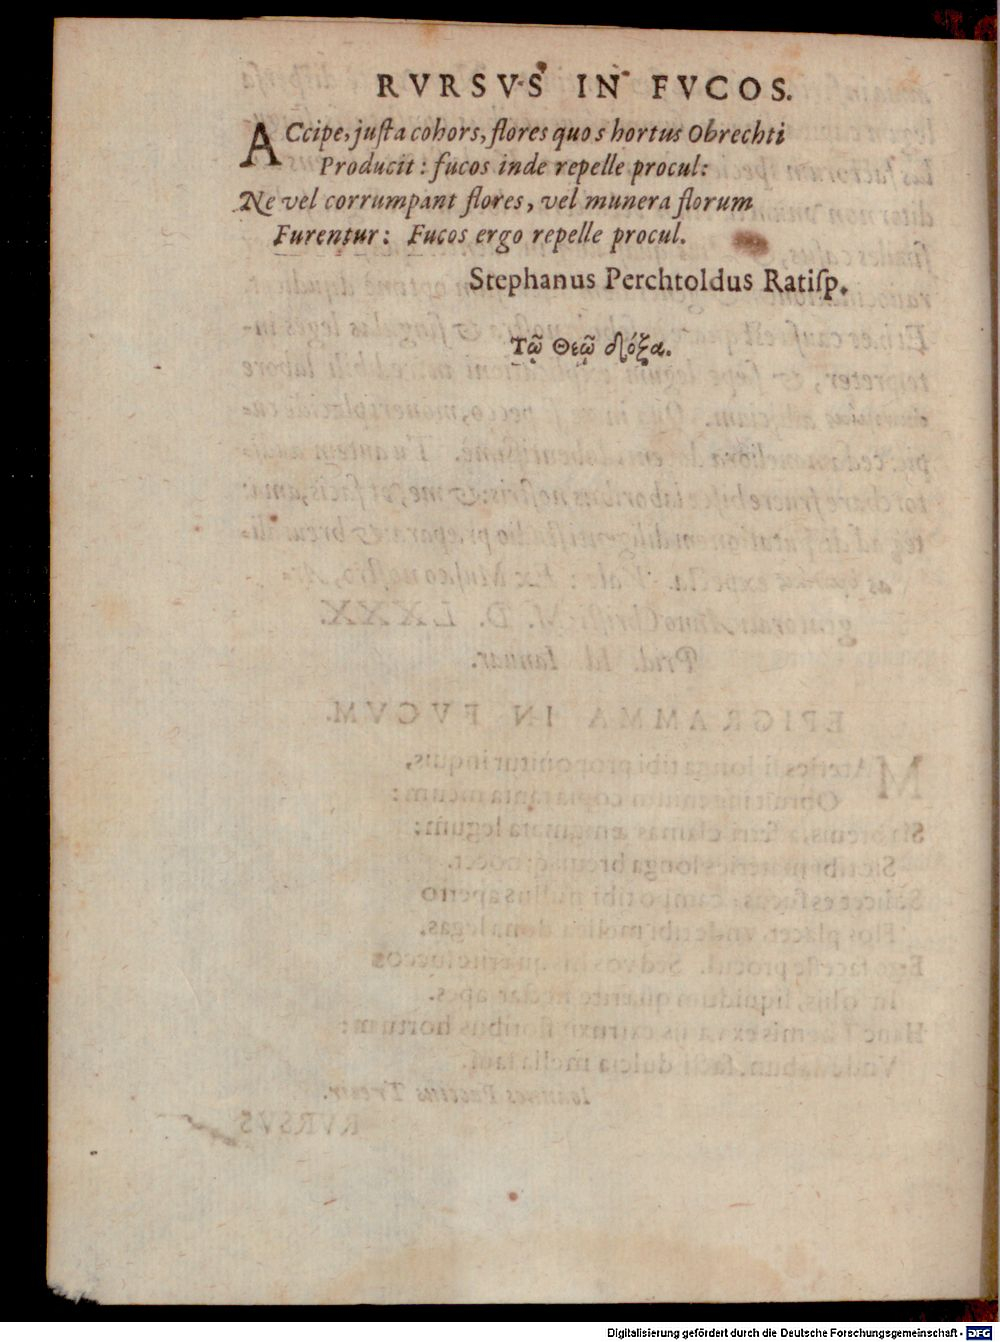 RVRSVS IN FVCOS.
ACcipe, juſta cohors, flores quos hortus Obrechti
Producit: fucos inde repelle procul:
Ne vel corrumpant flores, vel munera florum
Furentur: Fucos ergo repelle procul.
Stephanus Perchtoldus Ratiſp.
Τῷ Θεῷ δόξα.
Digitalisierung gefördert durch die Deutsche Forschungsgemeinschaft - DFG